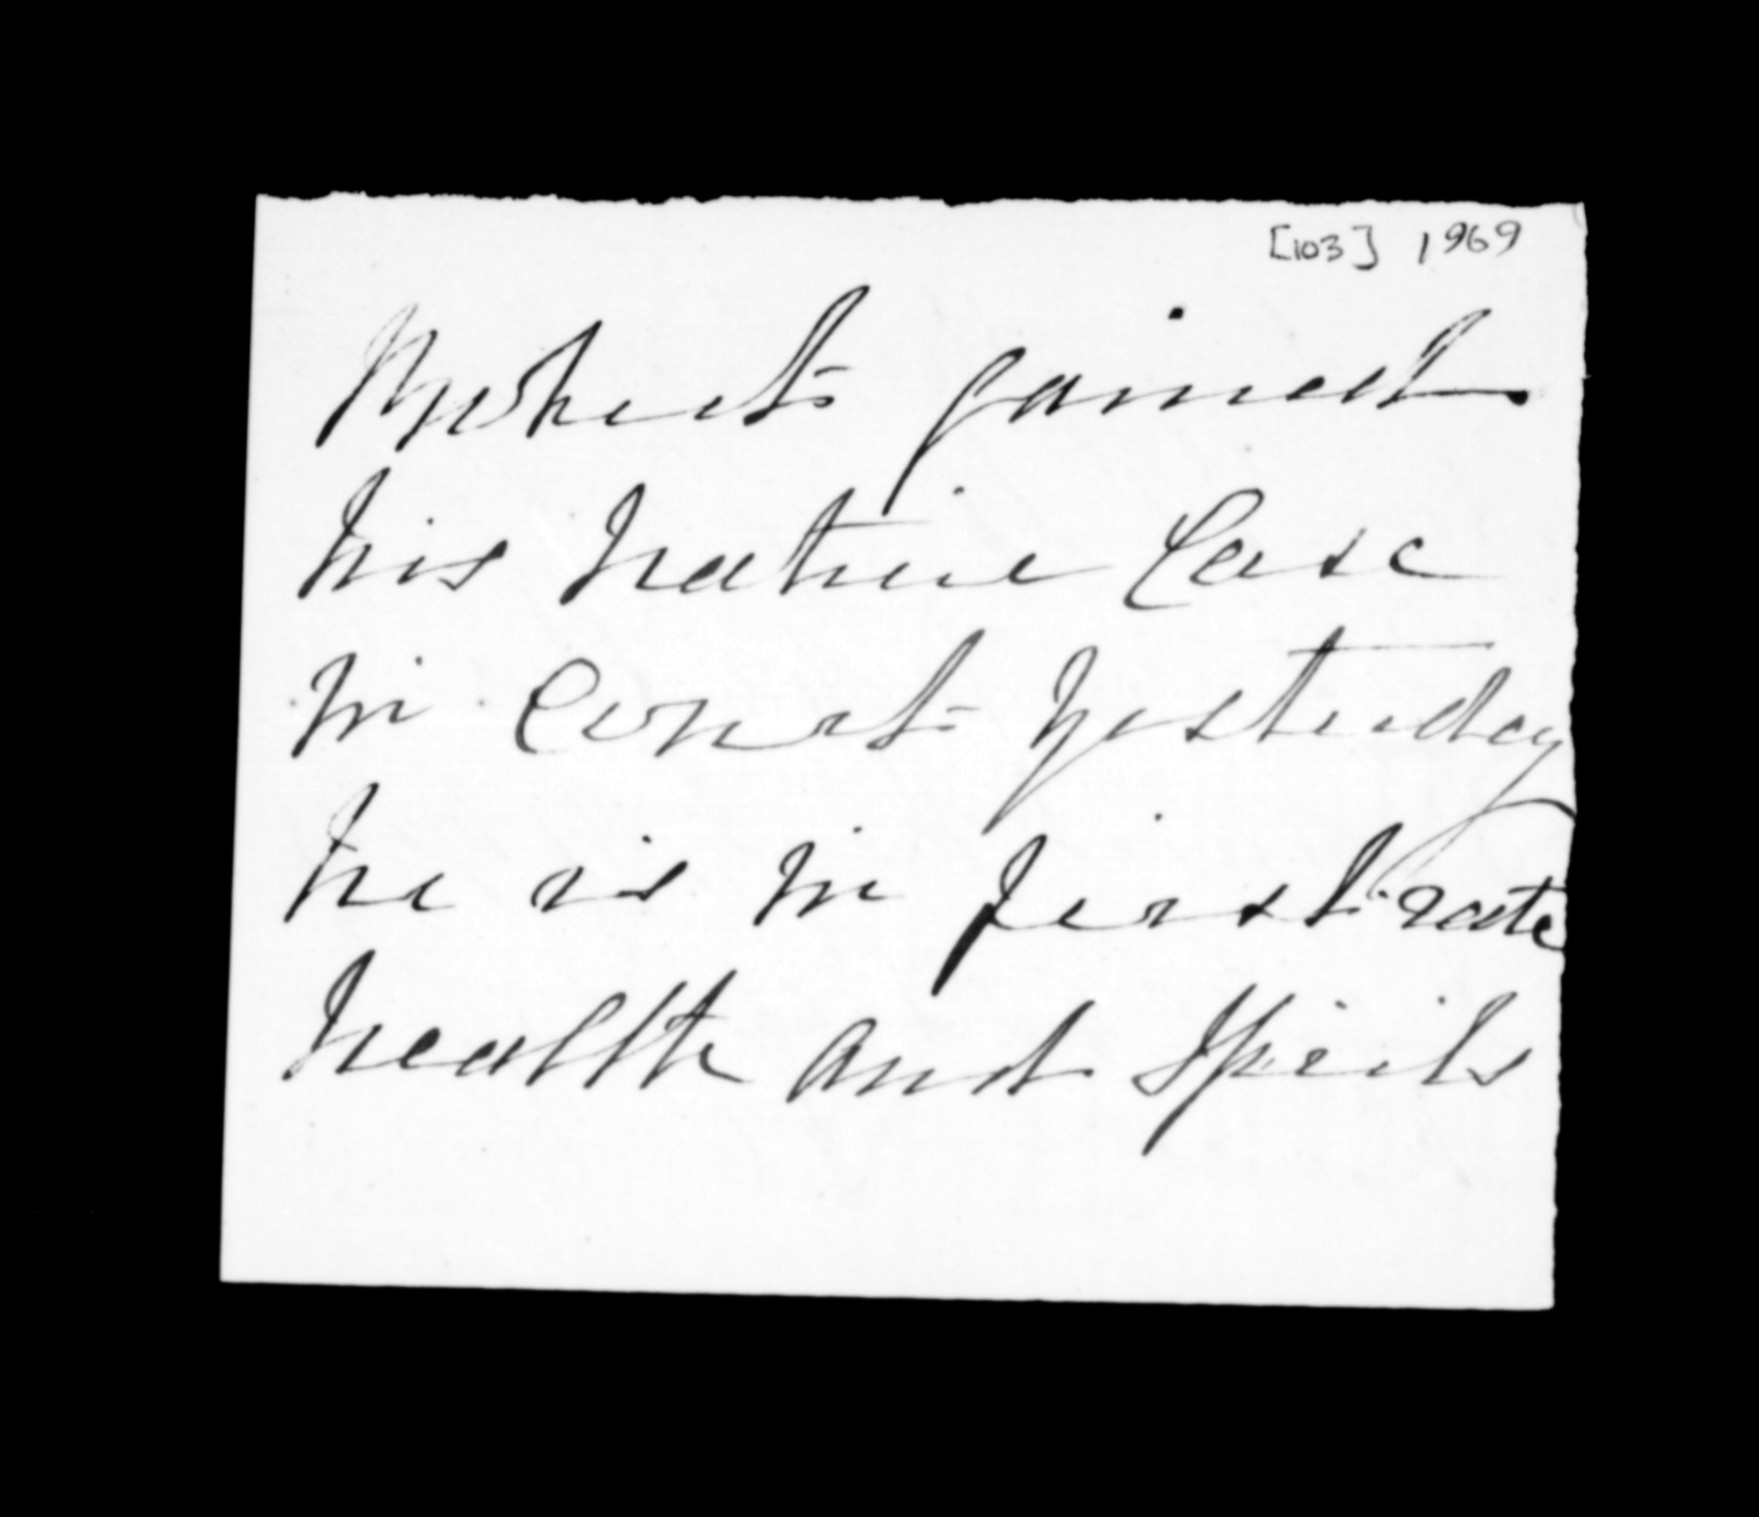 [103] 1969
gained
his Native Case
in Court Yesterday
he is in first rate
health and Spirits